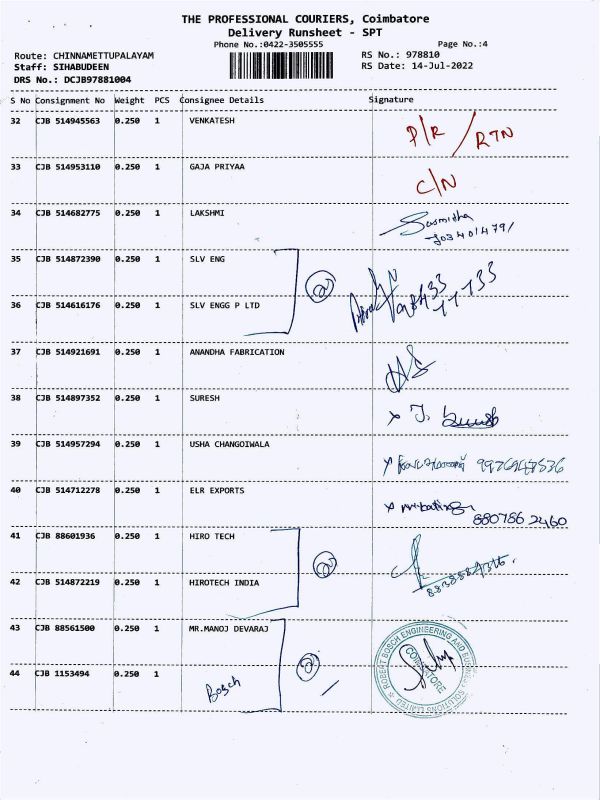 THE PROFESSIONAL COURIERS, Coimbatore
Delivery Runsheet - SPT
Phone No.:0422-3505555 Page No.:4
Route: CHINNAMETTUPALAYAM RS No.: 978810
Staff: SIHABUDEEN RS Date: 14-Jul-2022
DRS No.: DCJB97881004
S No Consignment No Weight PCS Consignee Details Signature
32 CJB 514945563 0.250 1 VENKATESH P/R / RTN
33 CJB 514953110 0.250 1 GAJA PRIYAA C/N
34 CJB 514682775 0.250 1 LAKSHMI Susmidha
35 CJB 514872390 0.250 1 SLV ENG
36 CJB 514616176 0.250 1 SLV ENGG P LTD
37 CJB 514921691 0.250 1 ANANDHA FABRICATION
38 CJB 514897352 0.250 1 SURESH
39 CJB 514957294 0.250 1 USHA CHANGOIWALA
40 CJB 514712278 0.250 1 ELR EXPORTS
880786 2460
41 CJB 88601936 0.250 1 HIRO TECH
42 CJB 514872219 0.250 1 HIROTECH INDIA
43 CJB 88561500 0.250 1 MR.MANOJ DEVARAJ
44 CJB 1153494 0.250 1 Bosch
ROBERT BOSCH ENGINEERING AND BUSINESS SOLUTIONS LIMITED
COIMBATORE